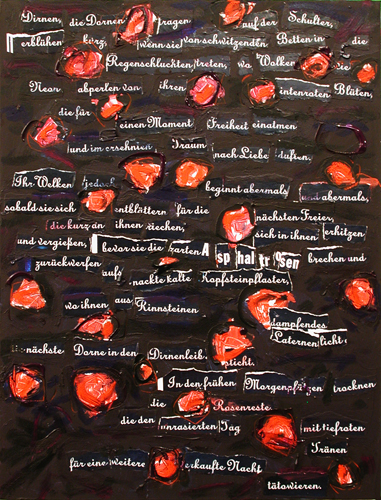 Dirnen, die Dornen tragen auf der Schulter,
erblühen kurz, wenn sie von schwitzenden Betten in die
Regenschluchten treten, wo Wolken die
Neon abperlen von ihren intenroten Blüten,
die für
einen Moment Freiheit einatmen
und im ersehnten Traum nach Liebe duften.
Ihr Welken jedoch beginnt abermals und abermals,
sobald sie sich entblättern für die nächsten Freier,
die kurz an ihnen riechen, sich in ihnen erhitzen
und vergießen, bevor sie die harten Asphaltrosen brechen und
zurückwerfen aufs nackte kalte Kopfsteinpflaster,
wo ihnen aus Rinnsteinen dampfendes
Laternenlicht
nächste Dorne in den Dirnenleib sticht.
In den frühen Morgenpfützen trocknen
die Rosenreste
die den unrasierten Tag mit tiefroten
Tränen
für eine weitere verkaufte Nacht
tätowieren.